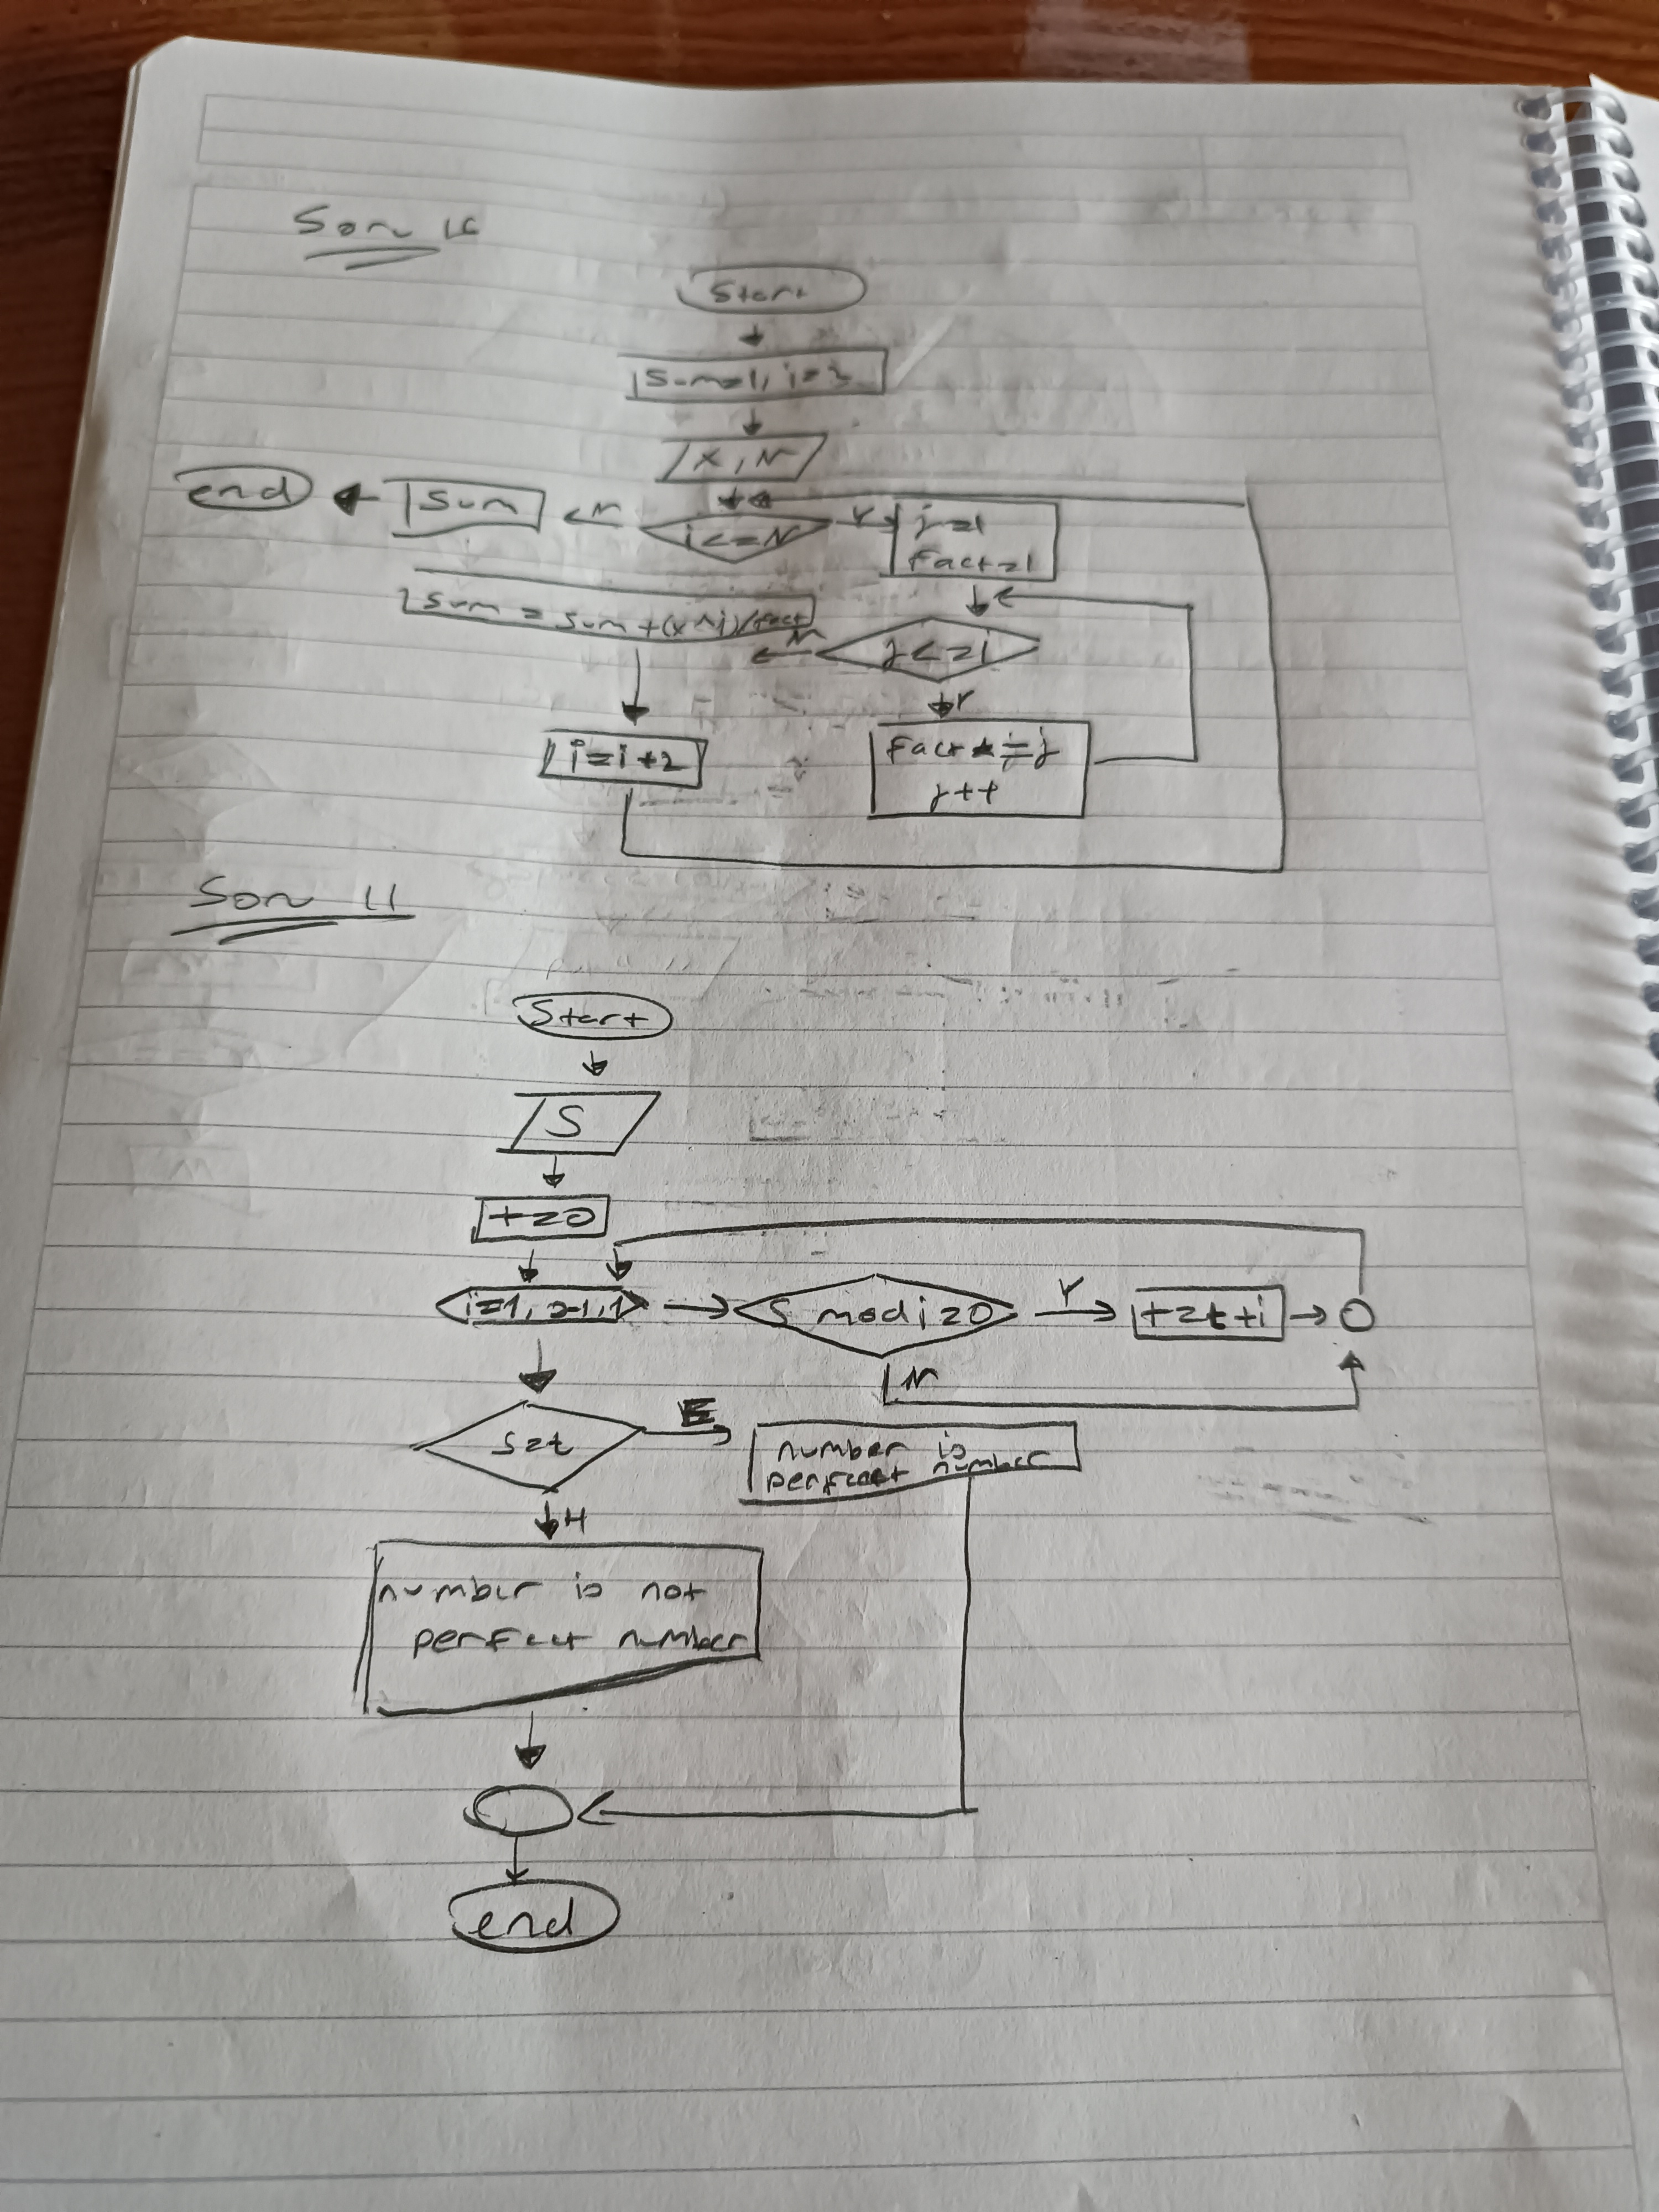 Soru 16
Start
Sum=1, i=2
X, N
end
Sum
N
i<=N
Y
j=1
fact=1
Sum = sum+(x^i)/fact
N
j<=i
Y
i=i+2
fact*=j
j++
Soru 11
Start
S
t=0
i=1, s-1, 1
S mod i=0
Y
t=t+i
N
s=t
E
number is
perfect number
H
number is not
perfect number
end